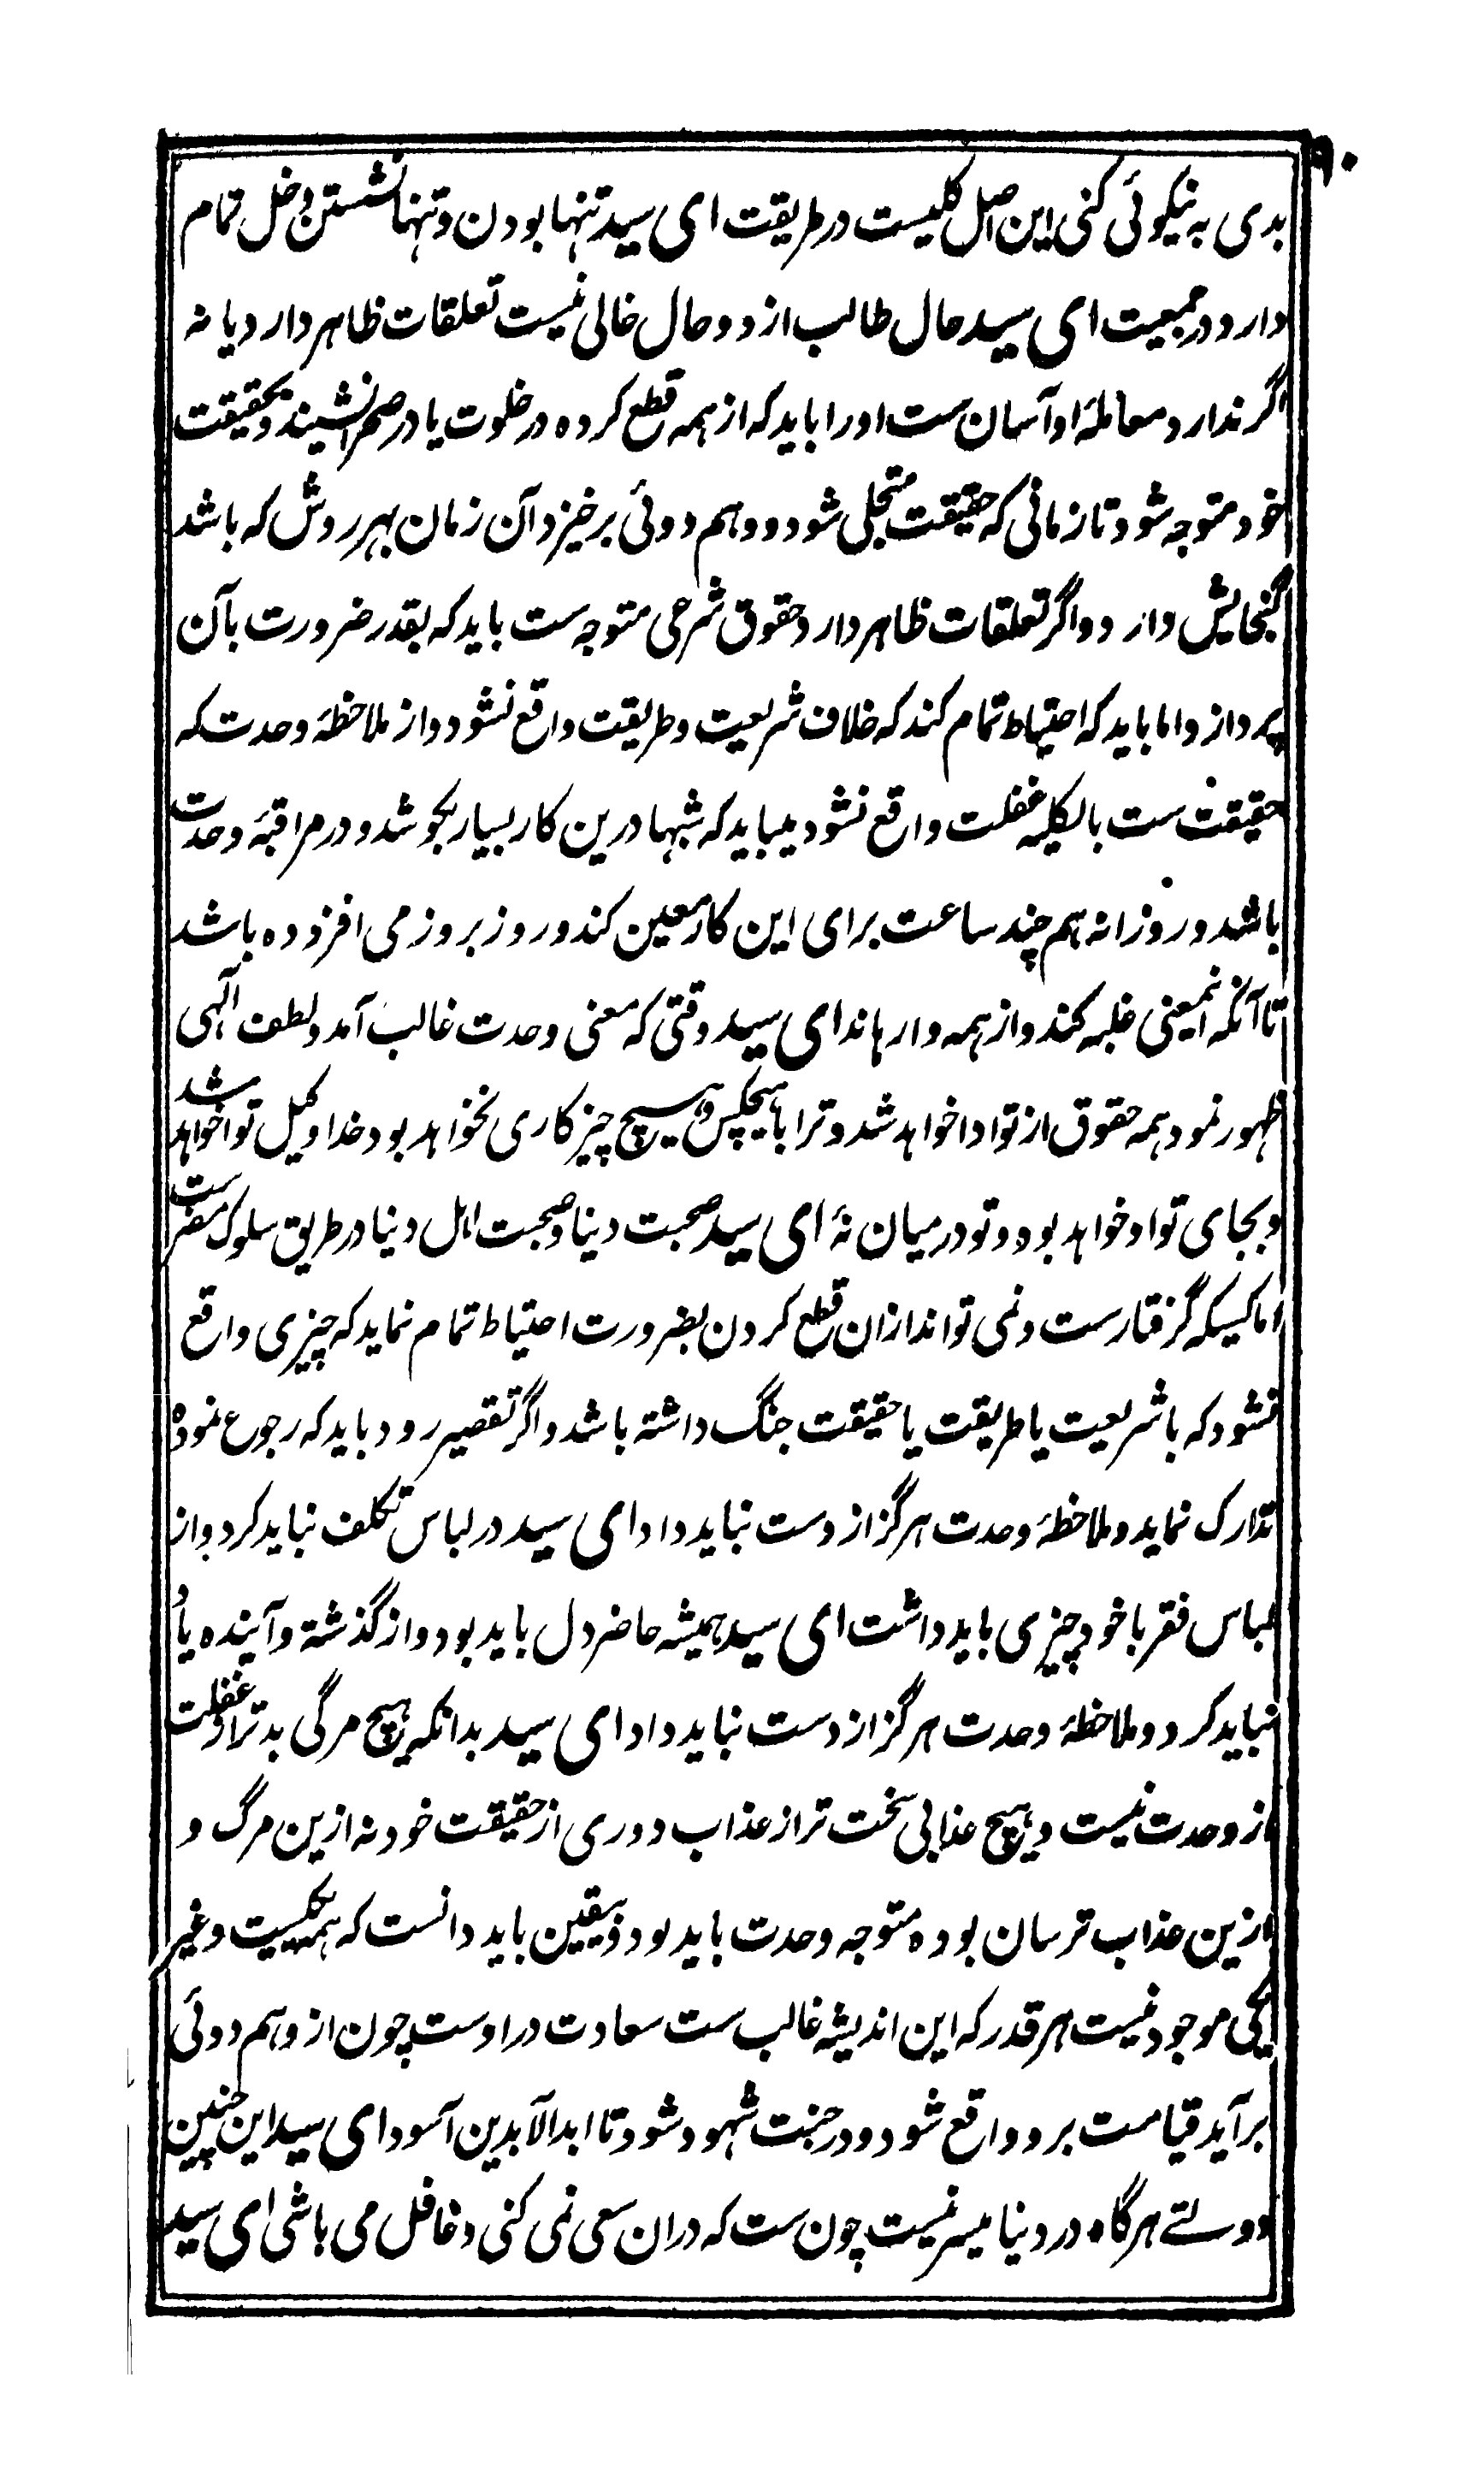 ۹۰
بدی به نیکوئی کنی این اصل کلیست در طریقت ای سید تنها بودن و تنها نشستن دخل تمام
دارد در جمعیت ای سید حال طالب از دو حال خالی نیست تعلقات ظاهر دارد یا نه
اگر ندارد معاملۀ او آسان ست او را باید که از همه قطع کرده در خلوت یا در صحرا نشیند و بحقیقت
خود متوجه شود تا زمانی که حقیقت متجلی شود و وهم دوئی برخیزد آن زمان بهر روش که باشد
گنجایش دارد و اگر تعلقات ظاهر دارد و حقوق شرعی متوجه ست باید که بقدر ضرورت بآن
پردازد اما باید که احتیاط تمام کند که خلاف شریعت و طریقت واقع نشود و از ملاحظۀ وحدت که
حقیقت ست بالکلیه غفلت واقع نشود میباید که شبها درین کار بسیار بکوشد و در مراقبۀ وحدت
باشد و روزانه هم چند ساعت برای این کار معین کند و روز بروز می افزوده باشد
تا آنکه اینمعنی غلبه کند و از همه وارهاند ای سید وقتی که معنی وحدت غالب آمد و لطف الٰهی
ظهور نمود همه حقوق از تو ادا خواهد شد و ترا با هیچکس و هیچ چیز کاری نخواهد بود خدا وکیل تو خواهد شد
و بجای تو او خواهد بود و تو درمیان نۀ ای سید صحبت دنیا و صحبت اهل دنیا در طریق سلوک مضر ست
اما کسیکه گرفتار ست و نمی تواند ازان قطع کردن بضرورت احتیاط تمام نماید که چیزی واقع
نشود که با شریعت یا طریقت یا حقیقت جنگ داشته باشد و اگر تقصیر رود باید که رجوع نموده
تدارک نماید و ملاحظۀ وحدت هرگز از دست نباید داد ای سید در لباس تکلف نباید کرد و از
لباس فقر با خود چیزی باید داشت ای سید همیشه حاضر دل باید بود و از گذشته و آینده یاد
نباید کرد و ملاحظۀ وحدت هرگز از دست نباید داد ای سید بدانکه هیچ مرگی بدتر از غفلت
از وحدت نیست و هیچ عذابی سخت تر از عذاب دوری از حقیقت خود نه ازین مرگ و
ازین عذاب ترسان بوده متوجه وحدت باید بود و بیقین باید دانست که همه یکیست و غیر
یکی موجود نیست هر قدر که این اندیشه غالب ست سعادت در اوست چون از وهم دوئی
برآید قیامت برو واقع شود و در جنت شهود شود تا ابدالآبدین آسود ای سید این چنین
دولتے هرگاه در دنیا میسر نیست چون ست که دران سعی نمی کنی و غافل می باشی ای سید